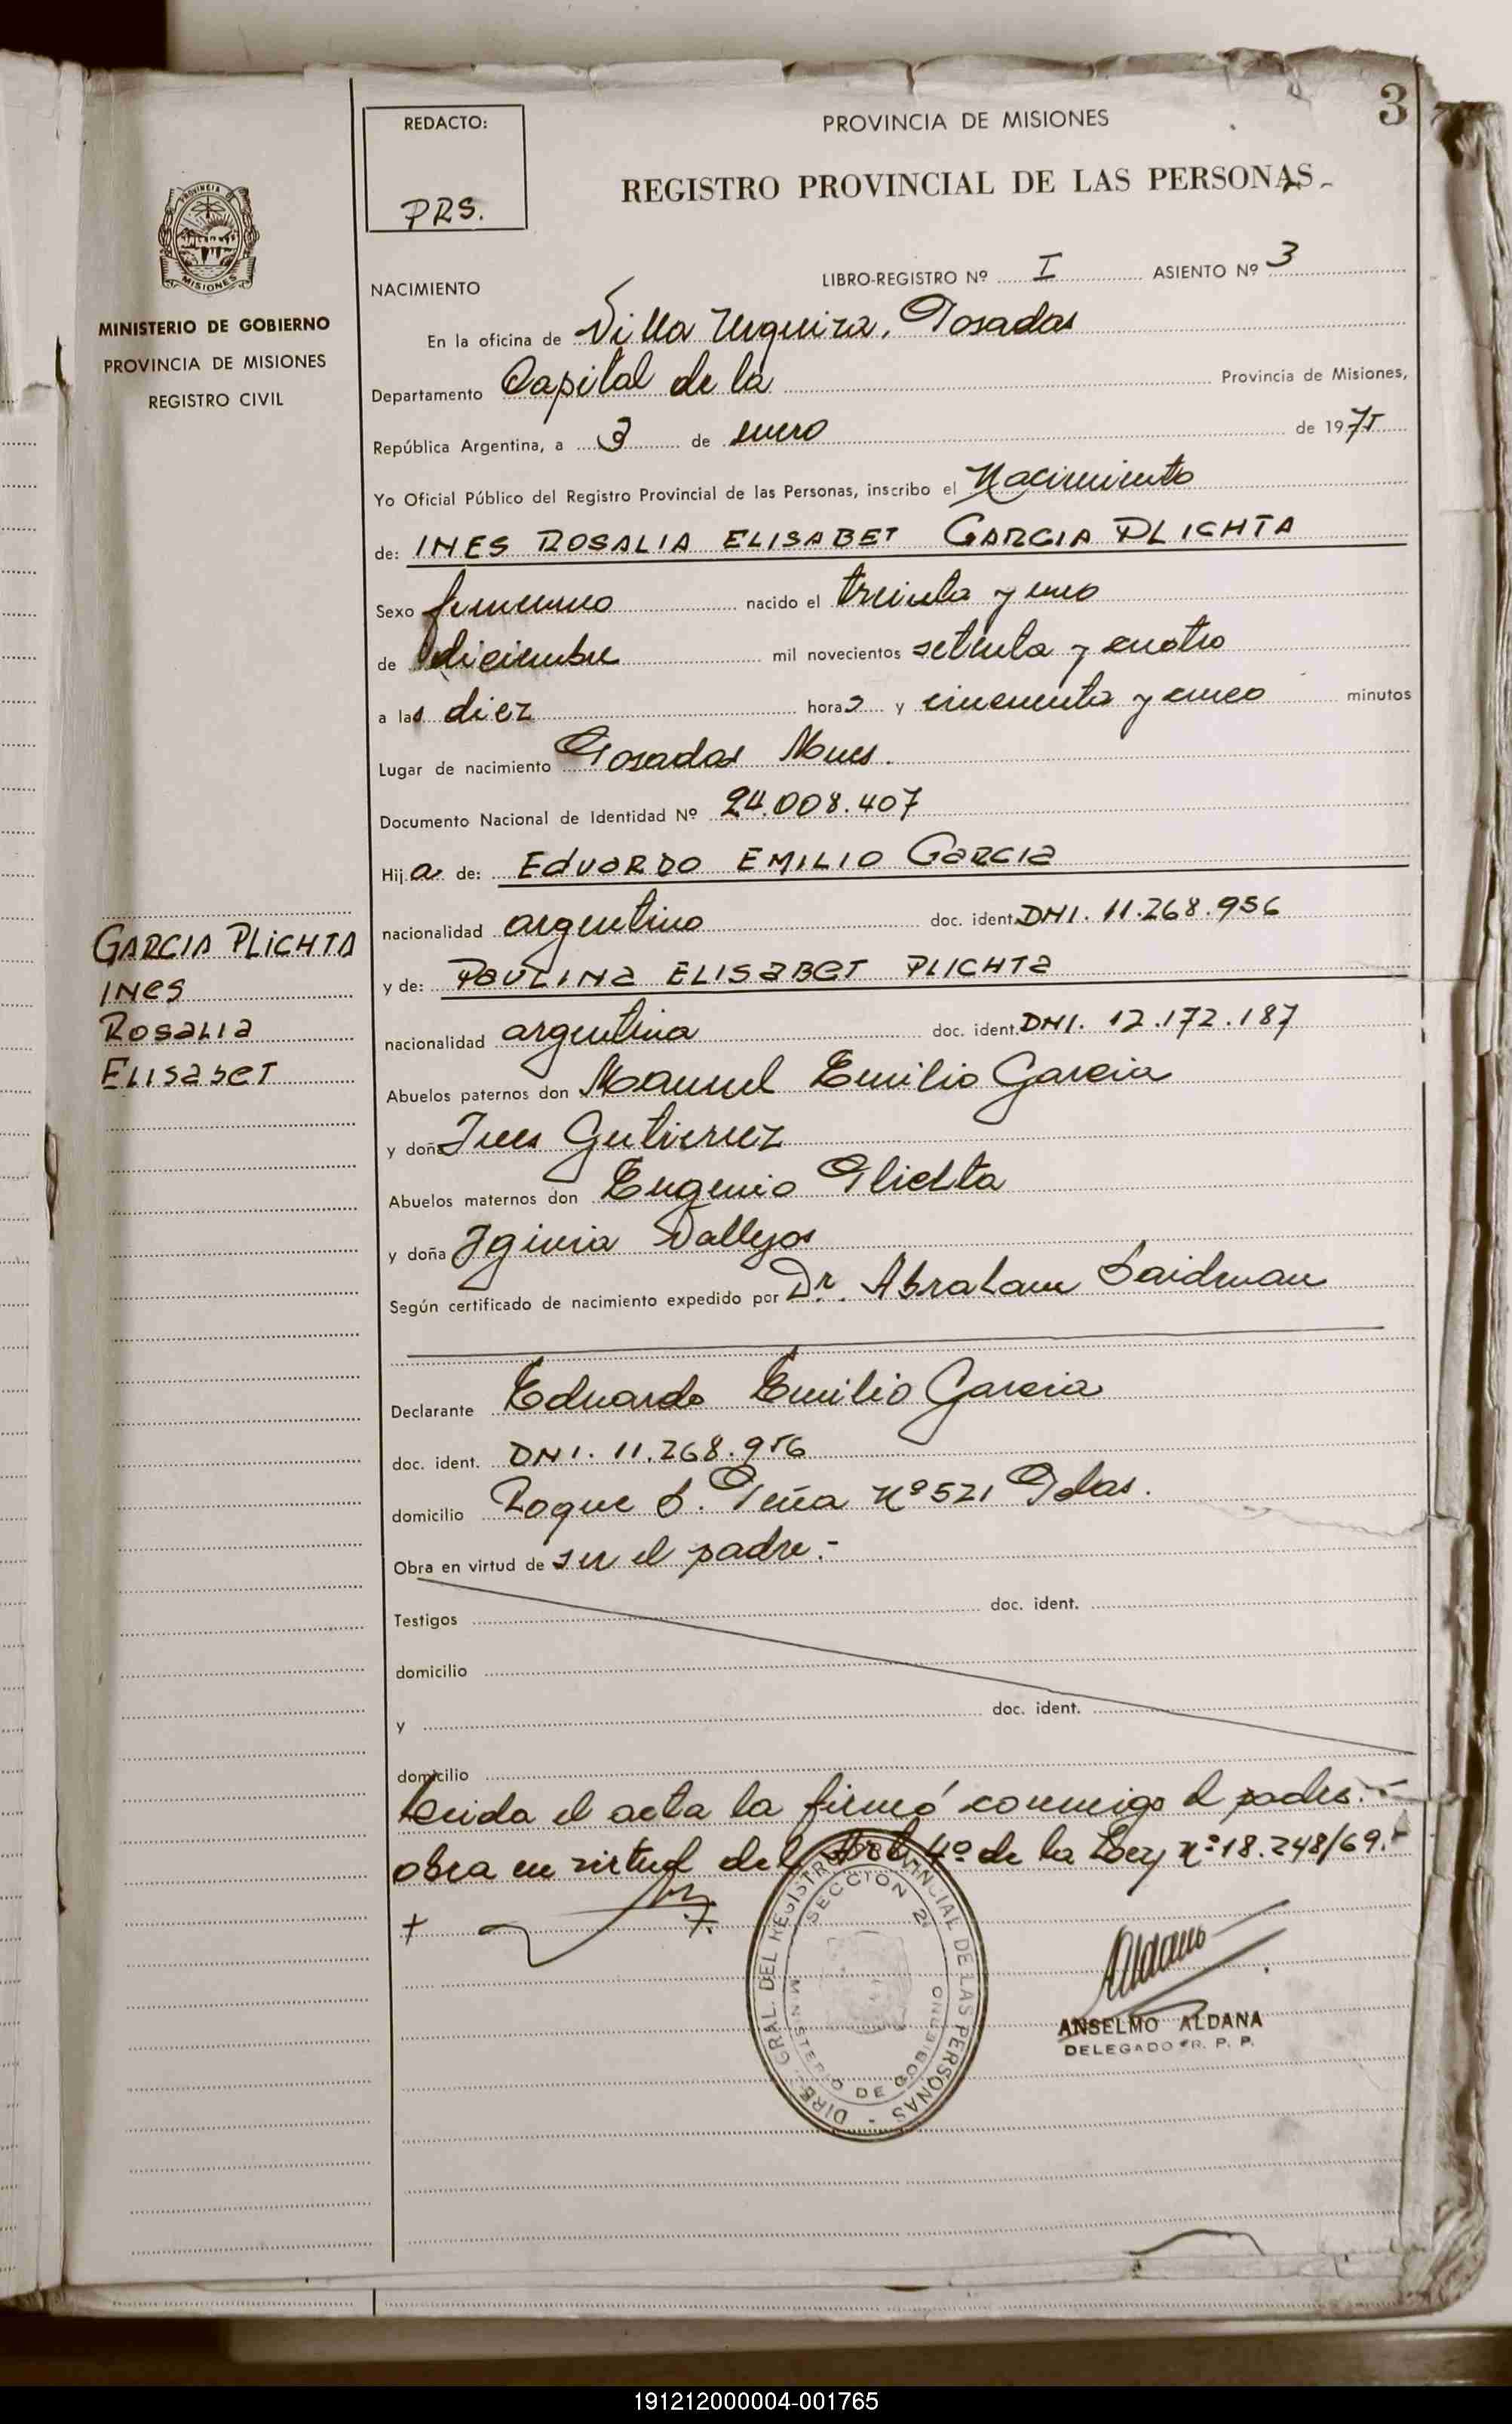 3
REDACTO:
PRS.
PROVINCIA DE MISIONES
REGISTRO PROVINCIAL DE LAS PERSONAS
PROVINCIA
MISIONES
MINISTERIO DE GOBIERNO
PROVINCIA DE MISIONES
REGISTRO CIVIL
NACIMIENTO LIBRO-REGISTRO Nº I ASIENTO Nº 3
En la oficina de Villa Urquiza, Posadas
Departamento Capital de la Provincia de Misiones,
República Argentina, a 3 de enero de 1975
Yo Oficial Público del Registro Provincial de las Personas, inscribo el Nacimiento
de: INES ROSALIA ELISABET GARCIA PLICHTA
Sexo femenino nacido el treinta y uno
de diciembre mil novecientos setenta y cuatro
a las diez horas y cincuenta y cinco minutos
Lugar de nacimiento Posadas Mnes.
Documento Nacional de Identidad Nº 24.008.407
Hija de: EDUARDO EMILIO GARCIA
nacionalidad argentino doc. ident. DNI. 11.268.956
y de: PAULINA ELISABET PLICHTA
nacionalidad argentina doc. ident. DNI. 12.172.187
Abuelos paternos don Manuel Emilio Garcia
y doña Ines Gutierrez
Abuelos maternos don Eugenio Plichta
y doña Iginia Vallejos
Según certificado de nacimiento expedido por Dr. Abraham Saidman
Declarante Eduardo Emilio Garcia
doc. ident. DNI. 11.268.956
domicilio Roque S. Peña Nº 521 Pdas.
Obra en virtud de ser el padre.-
Testigos doc. ident.
domicilio
y doc. ident.
domicilio
Leida el acta la firmó conmigo el padre.-
obra en virtud del Art. 4º de la Ley nº 18.248/69.-
GARCIA PLICHTA
INES
ROSALIA
ELISABET
DIREC. GRAL. DEL REGISTRO PROVINCIAL DE LAS PERSONAS -
SECCION 2ª
MINISTERIO DE GOBIERNO
Aldana
ANSELMO ALDANA
DELEGADO R. P. P.
191212000004-001765